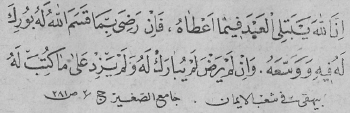 اِنَّ اللهَ يَبْتَلِى الْعَبْدَ فِيمَا اَعْطَاهُ ، فَاِنْ رَضِىَ بِمَا قَسَمَ اللهُ لَهُ بُورِكَ
لَهُ فِيهِ وَوَسَّعَهُ . وَاِنْ لَمْ يَرْضَ لَمْ يُبَارَكْ لَهُ وَلَمْ يَزِدْ عَلَى مَا كُتِبَ لَهُ
بيهقى فى شعب الايمان . جامع الصغير ج ص ٢٨١